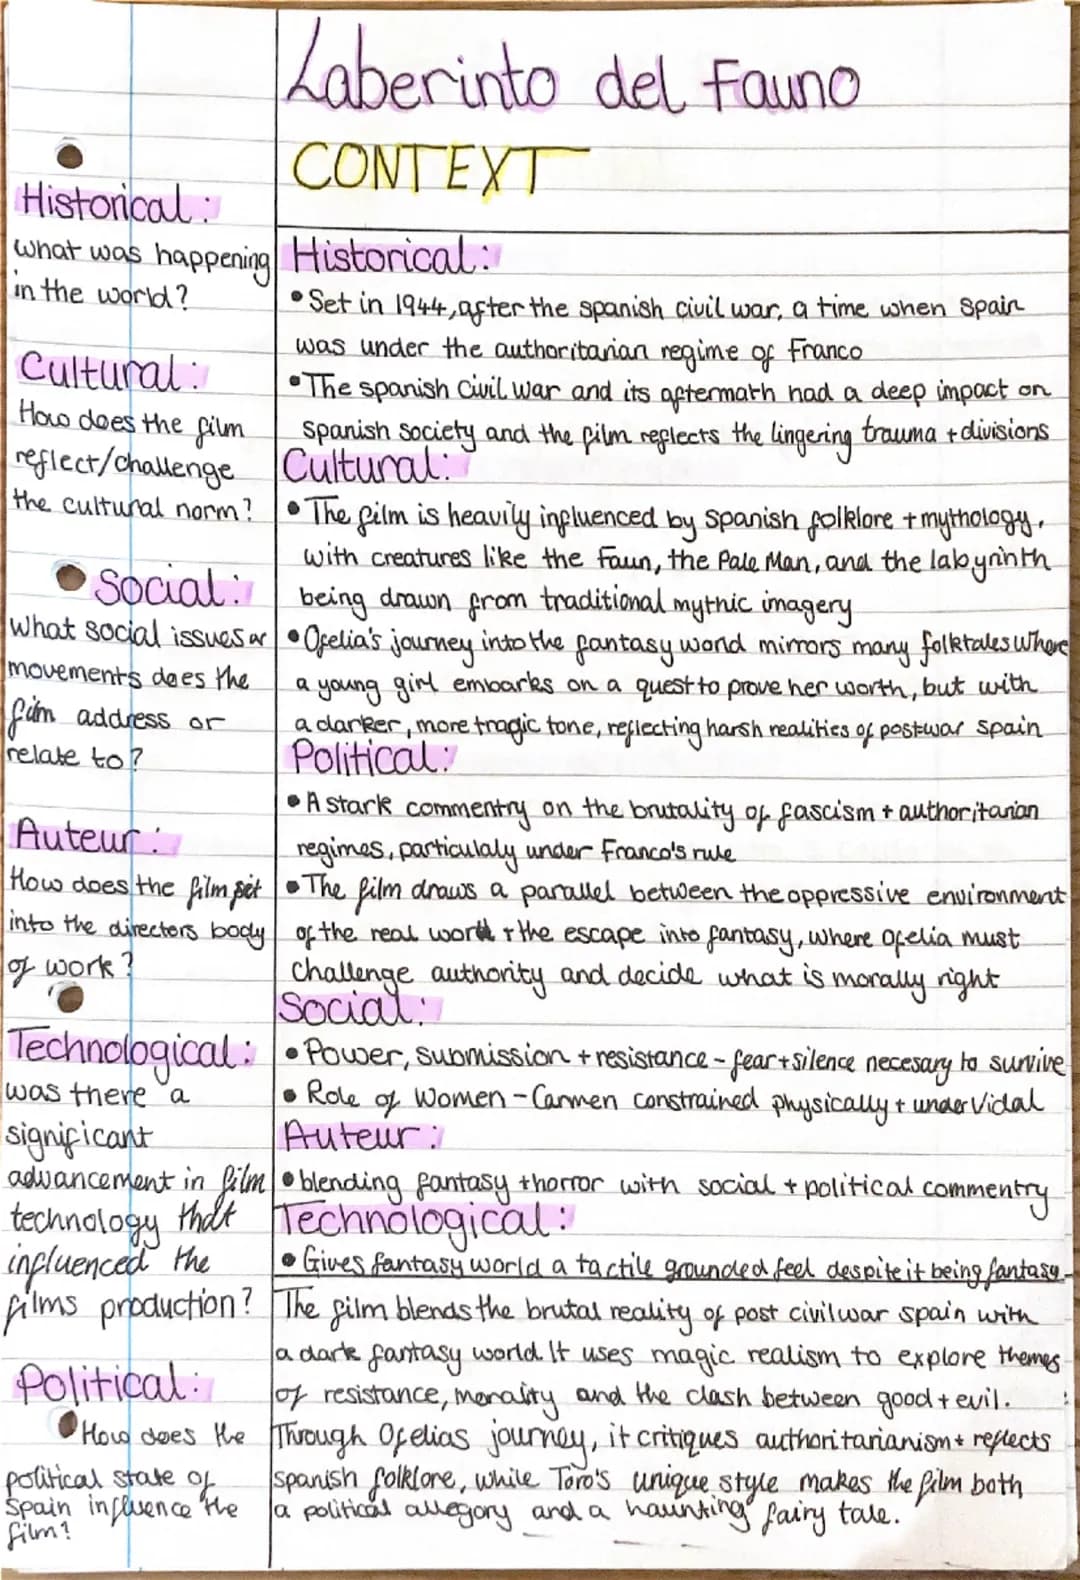 Laberinto del Fauno
CONTEXT
Historical:
what was happening
in the world?
Cultural:
How does the film
reflect/challenge
the cultural norm?
Social:
What social issues or
movements does the
film address or
relate to?
Auteur:
How does the film fit
into the directors body
of work?
Technological:
was there a
significant
advancement in film
technology that
influenced the
films production?
Political:
How does the
political state of
Spain influence the
film?
Historical:
• Set in 1944, after the spanish civil war, a time when Spain
was under the authoritarian regime of Franco
• The spanish Civil war and its aftermath had a deep impact on
spanish society and the film reflects the lingering trauma + divisions
Cultural:
• The film is heavily influenced by Spanish folklore + mythology,
with creatures like the Faun, the Pale Man, and the labyrinth
being drawn from traditional mythic imagery
• Ofelia's journey into the fantasy world mirrors many folktales where
a young girl embarks on a quest to prove her worth, but with
a darker, more tragic tone, reflecting harsh realities of post-war Spain
Political:
• A stark commentry on the brutality of fascism + authoritarian
regimes, particulaly under Franco's rule
• The film draws a parallel between the oppressive environment
of the real world + the escape into fantasy, where Ofelia must
challenge authority and decide what is morally right
Social:
• Power, submission + resistance - fear + silence necesary to survive
• Role of Women - Carmen constrained physically + under Vidal
Auteur:
• blending fantasy + horror with social + political commentry
Technological:
• Gives fantasy world a tactile grounded feel despite it being fantasy
The film blends the brutal reality of post civil war spain with
a dark fantasy world. It uses magic realism to explore themes
of resistance, morality and the clash between good + evil.
Through Ofelias journey, it critiques authoritarianism + reflects
spanish folklore, while Toro's unique style makes the film both
a political allegory and a haunting fairy tale.